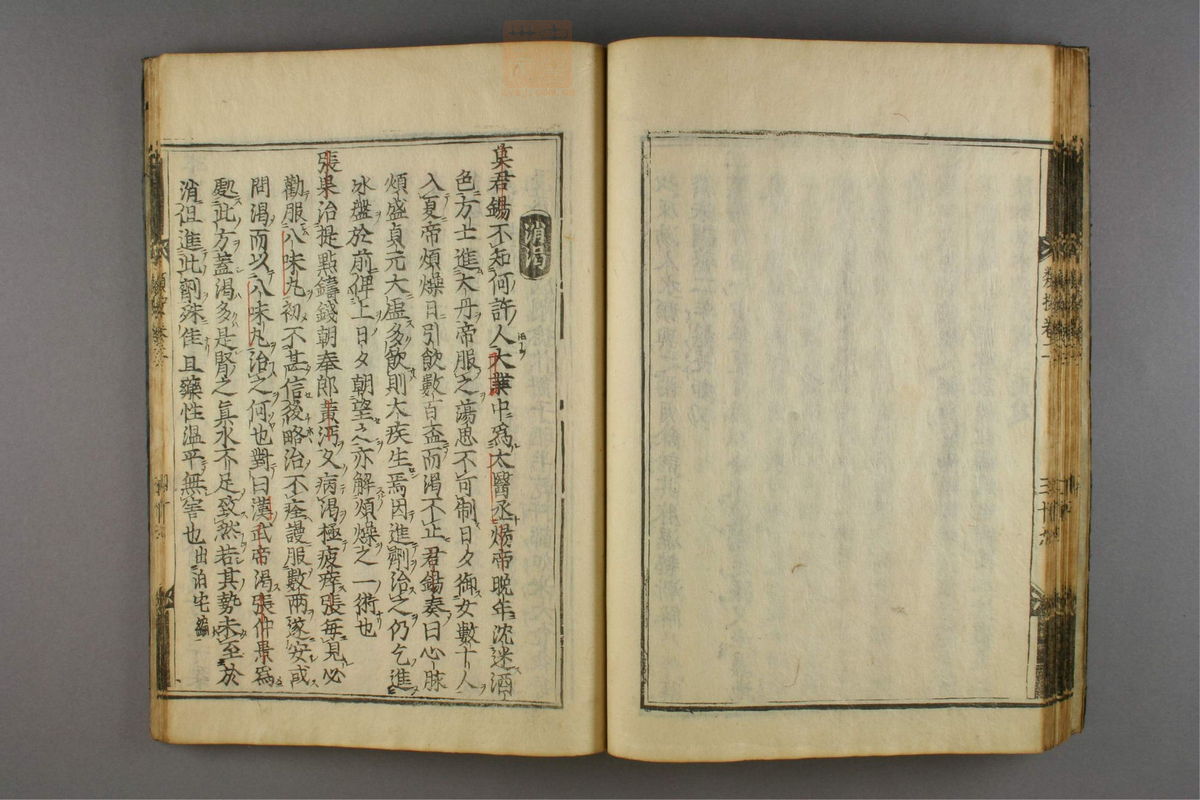 消渇
莫君錫不知何許人大業中爲太醫丞煬帝晚年沈迷酒
色方士進大丹帝服之蕩思不可制日夕御女數十人
入夏帝煩燥日引飲數百盃而渇不止君錫奏曰心脉
煩盛眞元大虛多飲則大疾生焉因進劑治之仍乞進
冰盤於前俾上日夕朝望之亦解煩燥之一術也
張杲治提點鑄錢朝奉郎黃沔久病渇極疲瘁張毎見必
勸服八味丸初不甚信後略治不痊謾服數兩遂安或
問渇而以八味丸治之何也對曰漢武帝渇張仲景爲
處此方蓋渇多是腎之眞水不足致然若其勢未至於
消但進此劑殊佳且藥性溫平無害也 出泊宅編